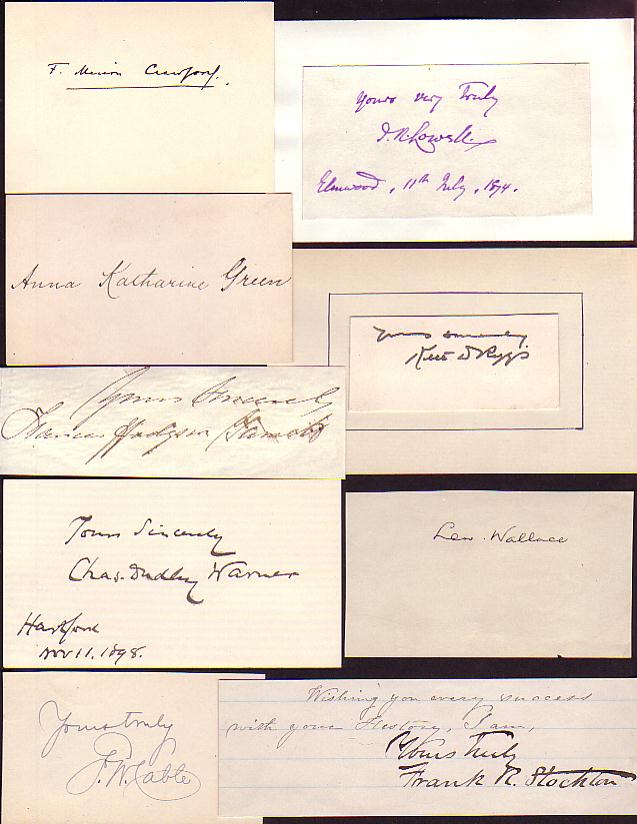 F. Marion Crawford.
Yours very truly
J. R. Lowell.
Elmwood, 11th July, 1874.
Anna Katharine Green
Yours sincerely
Kate D Riggs
Yours sincerely
Frances Hodgson Burnett
Yours Sincerely
Chas. Dudley Warner
Hartford
Nov 11. 1898.
Lew. Wallace
Yours truly
G. W. Cable
Wishing you every success
with your History, I am,
Yours truly
Frank R. Stockton